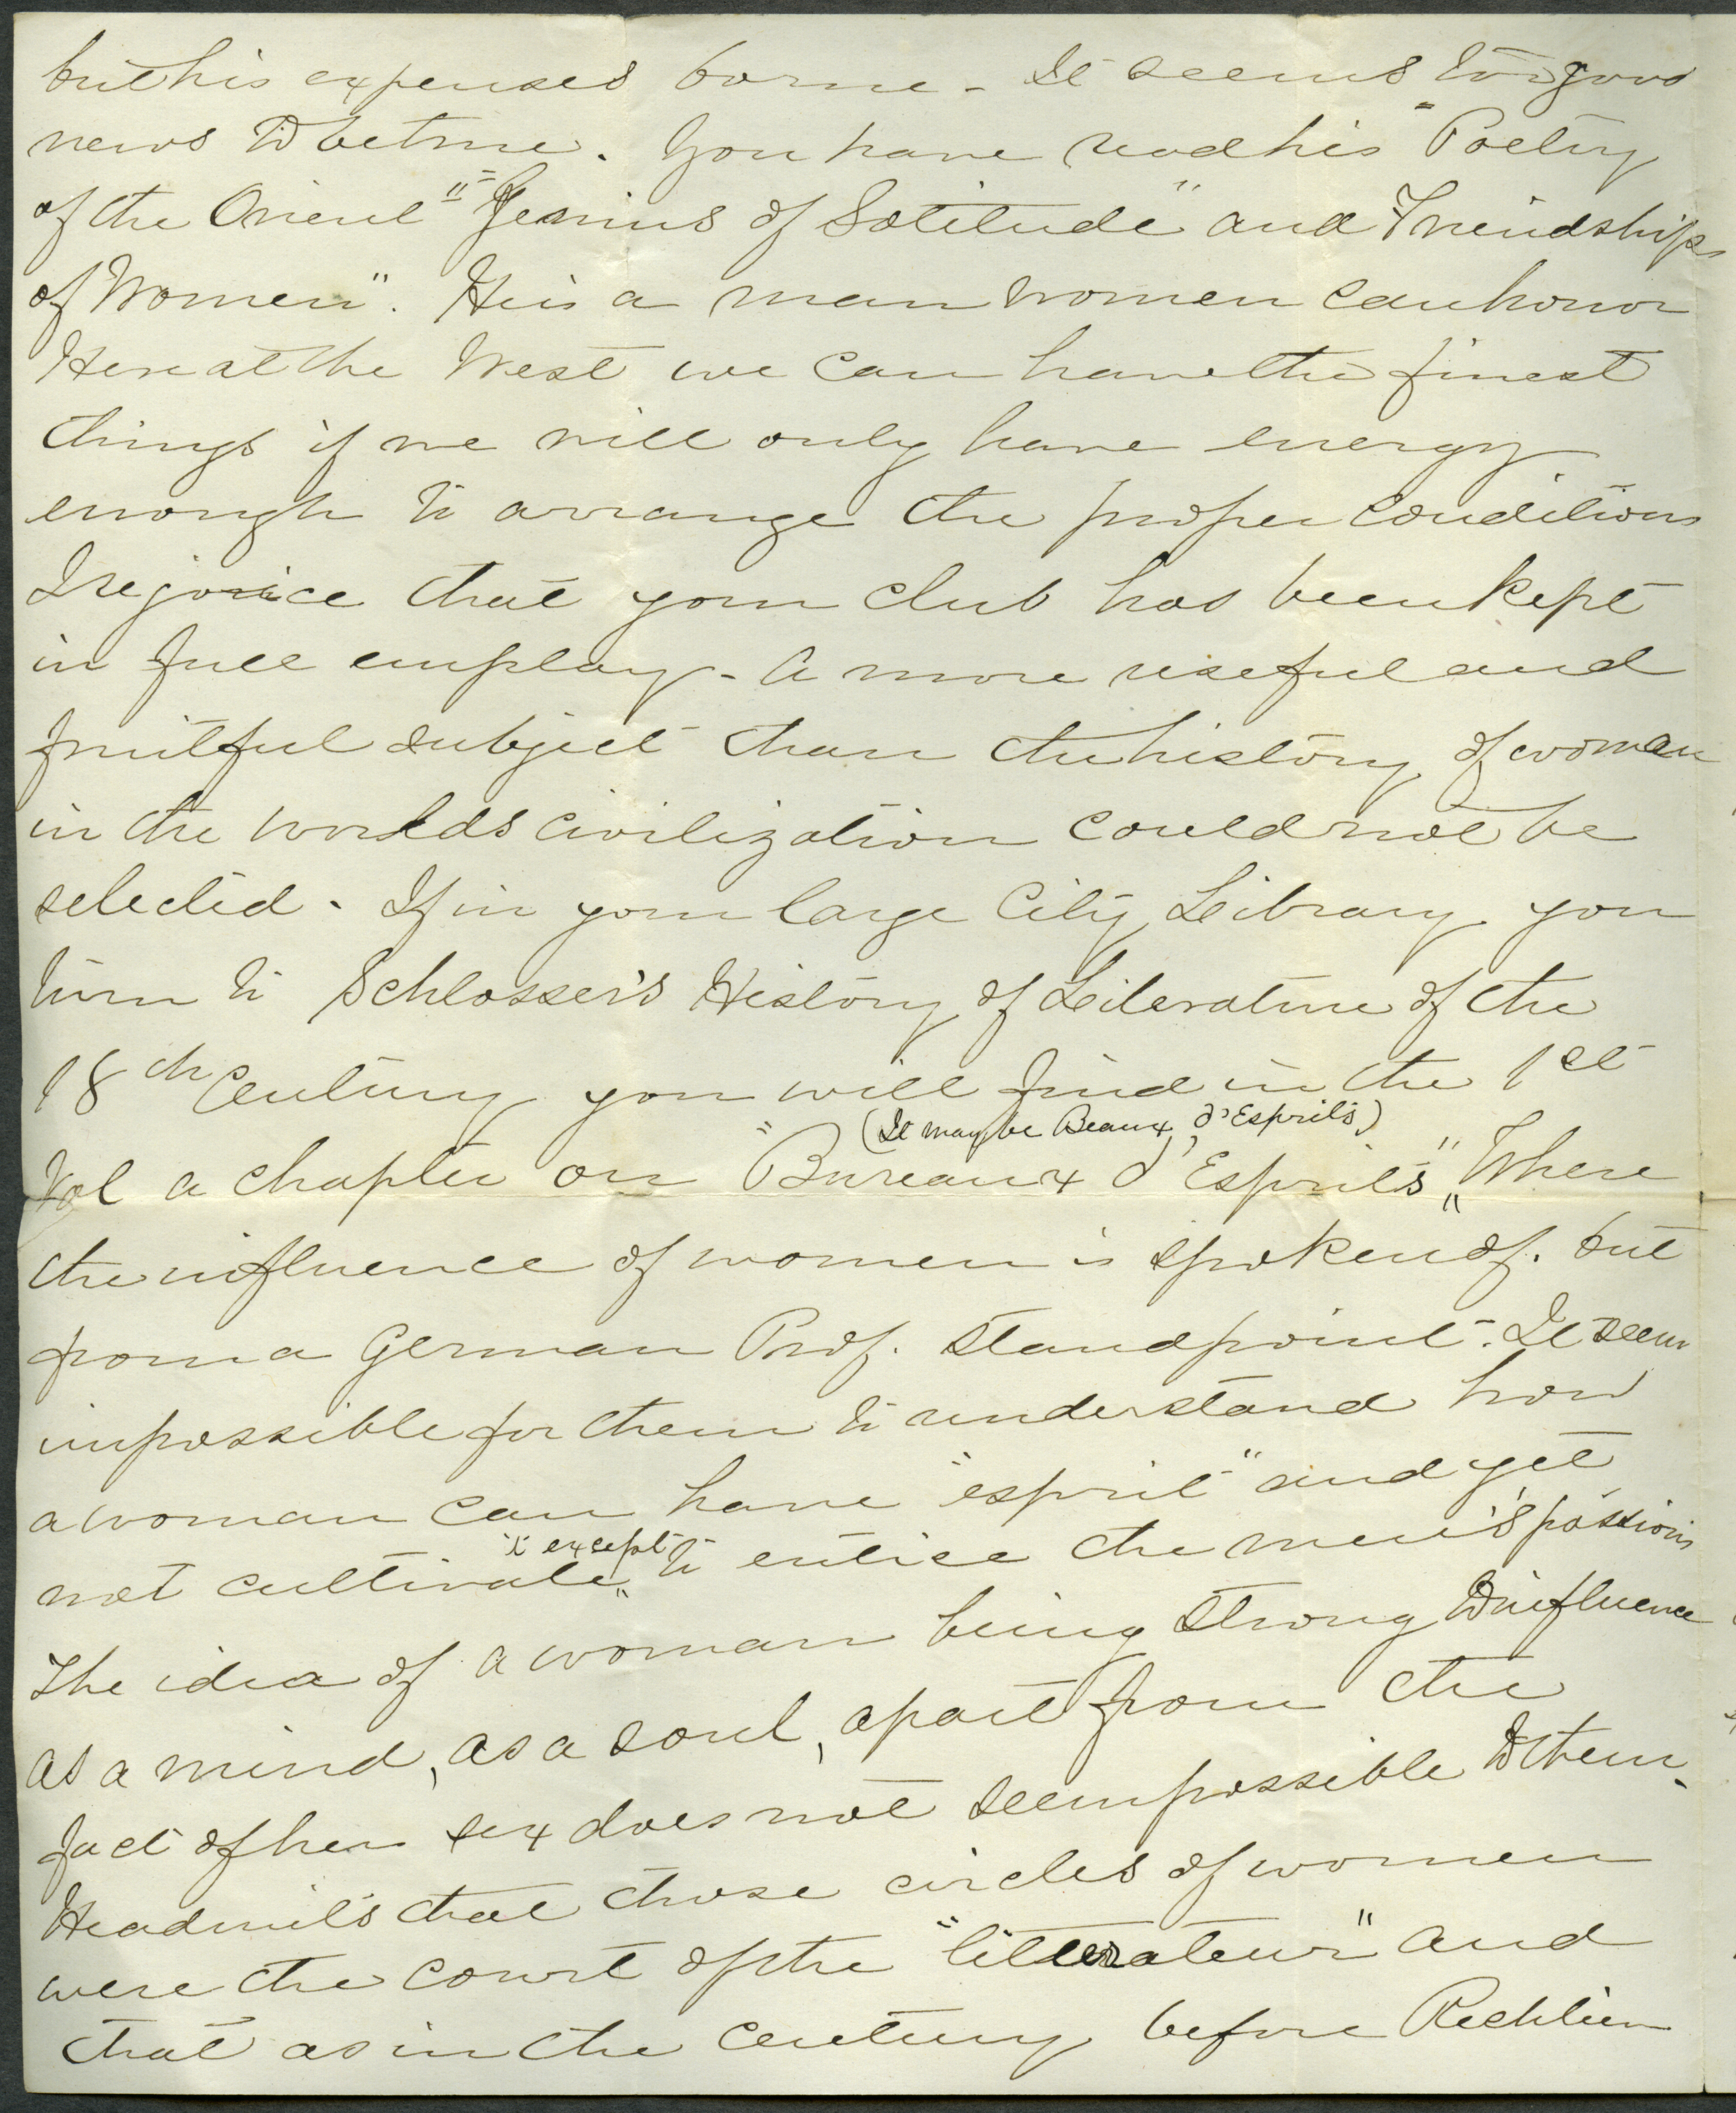 but his expenses borne - It seems too good
news to be true. You have read his "Poetry
of the Orient" "Genius of Solitude" and Friendships
of Women". He is a man women can honor
Here at the West we can have the finest
things if we will only have energy
enough to arrange the proper conditions
I rejoice that your club has been kept
in full employ - A more useful and
fruitful subject than the history of woman
in the worlds civilization could not be
selected. If in your large City Library you
turn to Schlosser's History of Literature of the
18th Century you will find in the 1st
(It may be Beaux d'Esprits)
Vol a chapter on "Bureaux d'Esprits", Where
the influence of women is spoken of. but
from a German Prof. standpoint. It seem
impossible for them to understand how
a woman can have "esprit" and yet
not cultivate "except" to entice the men's passions
The idea of a woman being strong to influence
as a mind, as a soul, apart from the
fact of her sex does not seem possible to them.
He admits that those circles of women
were the court of the "litterateur" and
that as in the century before Richlieu